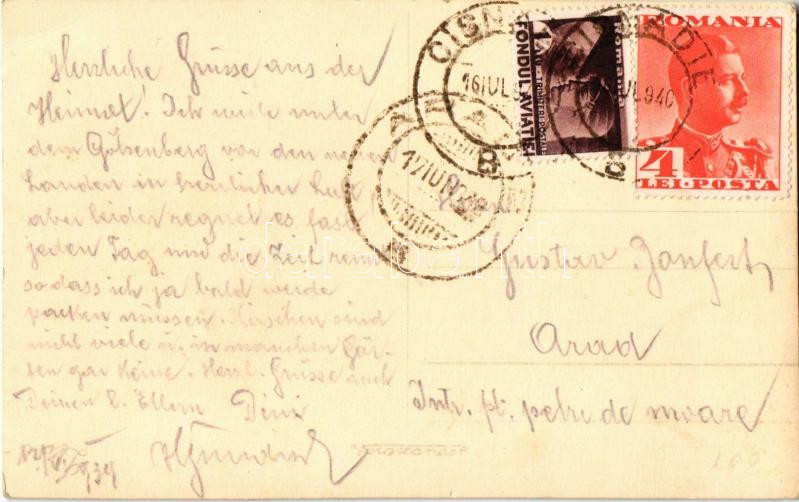 Herzliche Grüsse aus der
Heimat! Ich weile unter
dem Götzenberg vor den neuen
Landen in herrlicher Luft,
aber leider regnet es fast
jeden Tag und die Zeit rennt
so dass ich ja bald werde
packen müssen. Kirschen sind
nicht viele u. in manchen Gär-
ten gar keine. Herzl. Grüsse auch
Deinen l. Eltern Dein
CISNADIE
16 IUL 940
B
ROMANIA
1 LEU
TIMBRU POSTAL
FONDUL AVIATIEI
ROMANIA
4
LEI-POSTA
17 IUL
Gustav
Arad
Intr. pt. petri de moare
darabanth